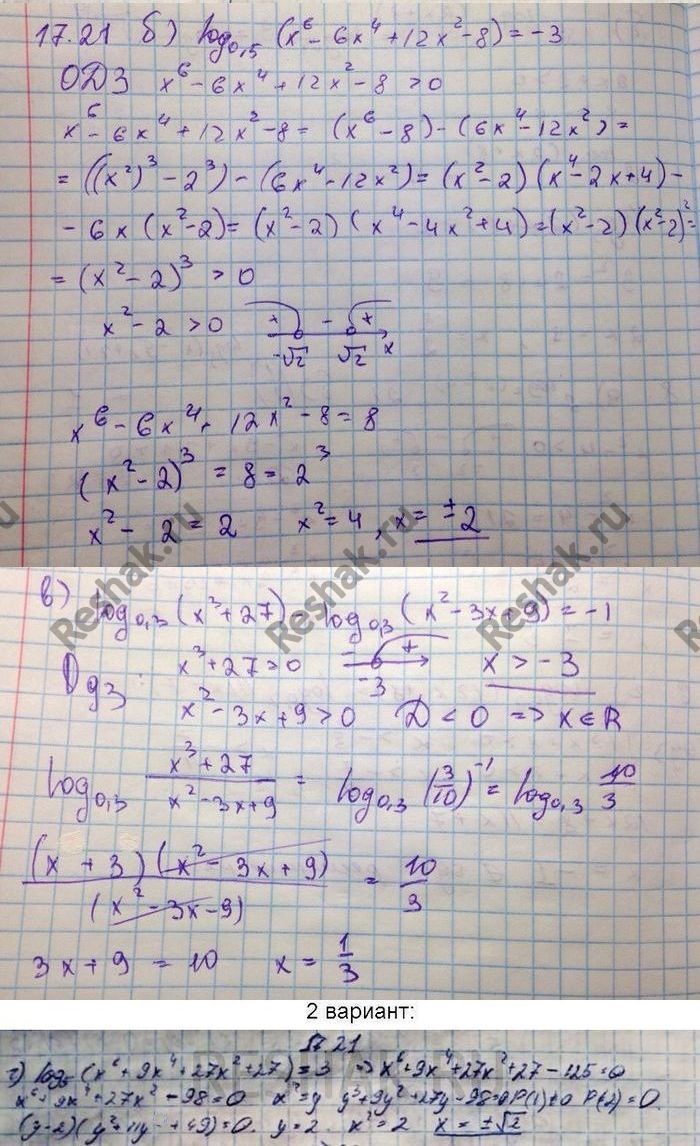 17.21 б) log₀,₅ (x⁶ - 6x⁴ + 12x² - 8) = -3
ОДЗ x⁶ - 6x⁴ + 12x² - 8 > 0
x⁶ - 6x⁴ + 12x² - 8 = (x⁶ - 8) - (6x⁴ - 12x²) =
= ((x²)³ - 2³) - (6x⁴ - 12x²) = (x² - 2)(x⁴ - 2x + 4) -
- 6x (x² - 2) = (x² - 2)(x⁴ - 4x² + 4) = (x² - 2)(x² - 2)² =
= (x² - 2)³ > 0
x² - 2 > 0 + - + -√2 √2 x
x⁶ - 6x⁴ + 12x² - 8 = 8
(x² - 2)³ = 8 = 2³
x² - 2 = 2 x² = 4, x = ±2
Reshak.ru
Reshak.ru
Reshak.ru
в) log₀,₃ (x³ + 27) - log₀,₃ (x² - 3x + 9) = -1
ОДЗ: x³ + 27 > 0 - + -3 x > -3
x² - 3x + 9 > 0 D < 0 => x ∈ R
log₀,₃ (x³ + 27)/(x² - 3x + 9) = log₀,₃ (3/10)⁻¹ = log₀,₃ 10/3
(x + 3)(x² - 3x + 9)/(x² - 3x - 9) = 10/3
3x + 9 = 10 x = 1/3
2 вариант:
17.21
г) log₅ (x⁶ + 9x⁴ + 27x² + 27) = 3 => x⁶ + 9x⁴ + 27x² + 27 - 125 = 0
x⁶ + 9x⁴ + 27x² - 98 = 0 x² = y y³ + 9y² + 27y - 98 = 0 P(1) ≠ 0 P(2) = 0.
(y - 2)(y² + 11y + 49) = 0. y = 2. x² = 2 x = ±√2